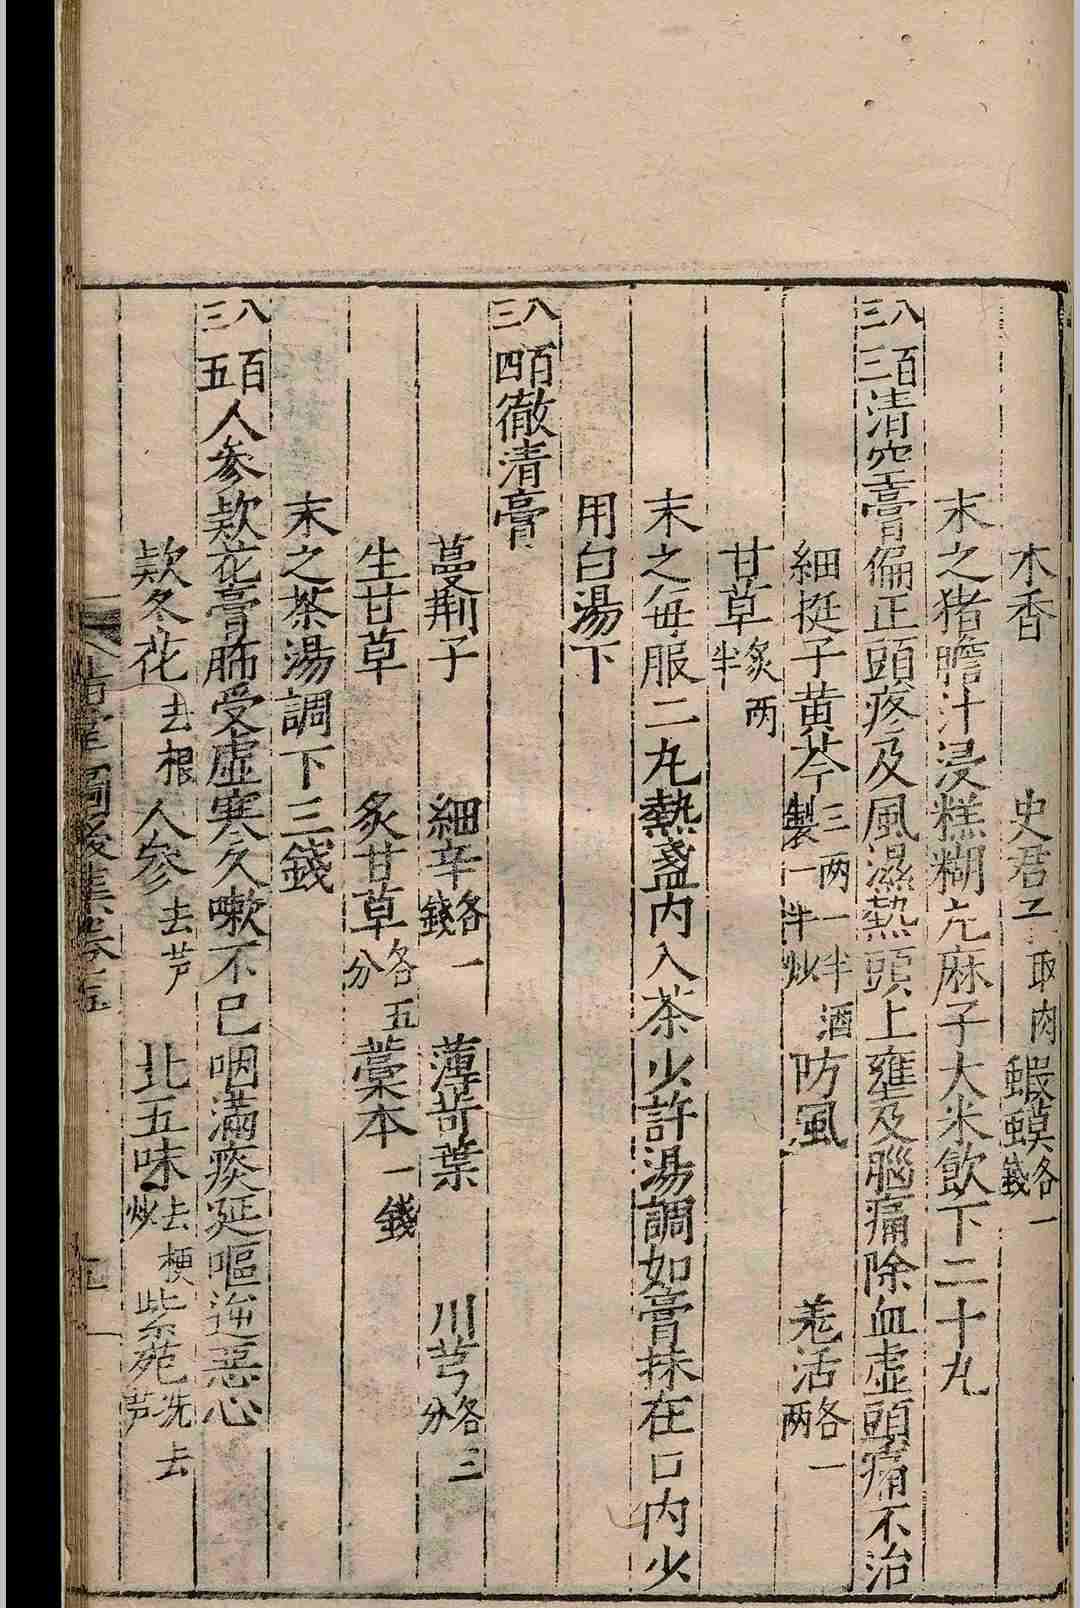 木香 史君子取肉 蝦蟆各一錢
末之猪膽汁浸糕糊丸麻子大米飲下二十丸
八百三三清空膏偏正頭疼及風濕熱頭上壅及腦痛除血虚頭痛不治
細挺子黄芩三两一半酒製一半炒 防風 羌活各一两
甘草炙半两
末之每服二丸熱盞内入茶少許湯調如膏抹在口内少
用白湯下
八百三四徹清膏
蔓荆子 細辛各一錢 薄苛葉 川芎各三分
生甘草 炙甘草各五分 藁本一錢
末之茶湯調下三錢
八百三五人参欵花膏肺受虚寒久嗽不已咽滿痰延嘔逆惡心
欵冬花去根 人参去芦 北五味去梗炒 紫苑洗去芦